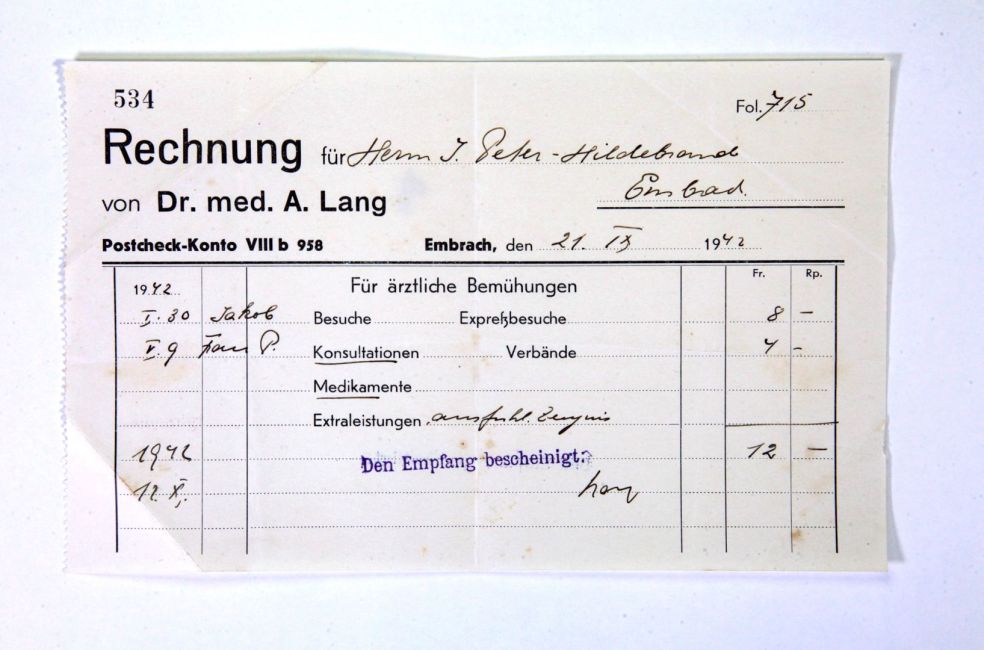 534
Fol. 715
Rechnung für Herrn J. Peter-Hildebrand
von Dr. med. A. Lang
Postcheck-Konto VIII b 958 Embrach, den 21. IX 1942
Fr. Rp.
1942 Für ärztliche Bemühungen
I. 30 Jakob Besuche Expreßbesuche 8 –
V. 9 Frau P. Konsultationen Verbände 4 –
Medikamente
Extraleistungen ausführl. Zeugnis
1942 Den Empfang bescheinigt: 12 –
12. X.
Lang